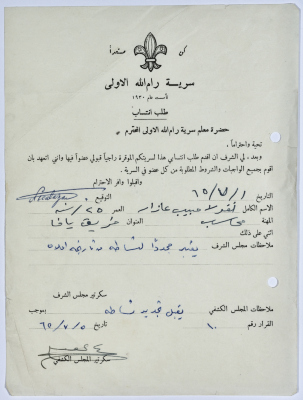 كن مستعداً
سرية رام الله الاولى
تأسست عام ١٩٣٠
طلب انتساب
حضرة معلم سرية رام الله الاولى المحترم
تحية واحتراماً ،
وبعد ، لي الشرف ان اقدم طلب انتسابي هذا لسريتكم الموقرة راجياً قبولي عضواً فيها وانني اتعهد بان
اقوم بجميع الواجبات والشروط المطلوبة من كل عضو في السرية .
واقبلوا وافر الاحترام
التاريخ ١/٧/٦٥ التوقيع
الاسم الكامل نقولا حبيب العمر ٢٥ سنه
المهنة محاسب العنوان
اثني على ذلك
ملاحظات مجلس الشرف يعتبر مجدداً لنشاطه من تاريخه اعلاه
سكرتير مجلس الشرف
ملاحظات المجلس الكشفي يقبل تجديد نشاطه بموجب
القرار رقم ١٠ تاريخ ٥/٧/٦٥
سكرتير المجلس الكشفي